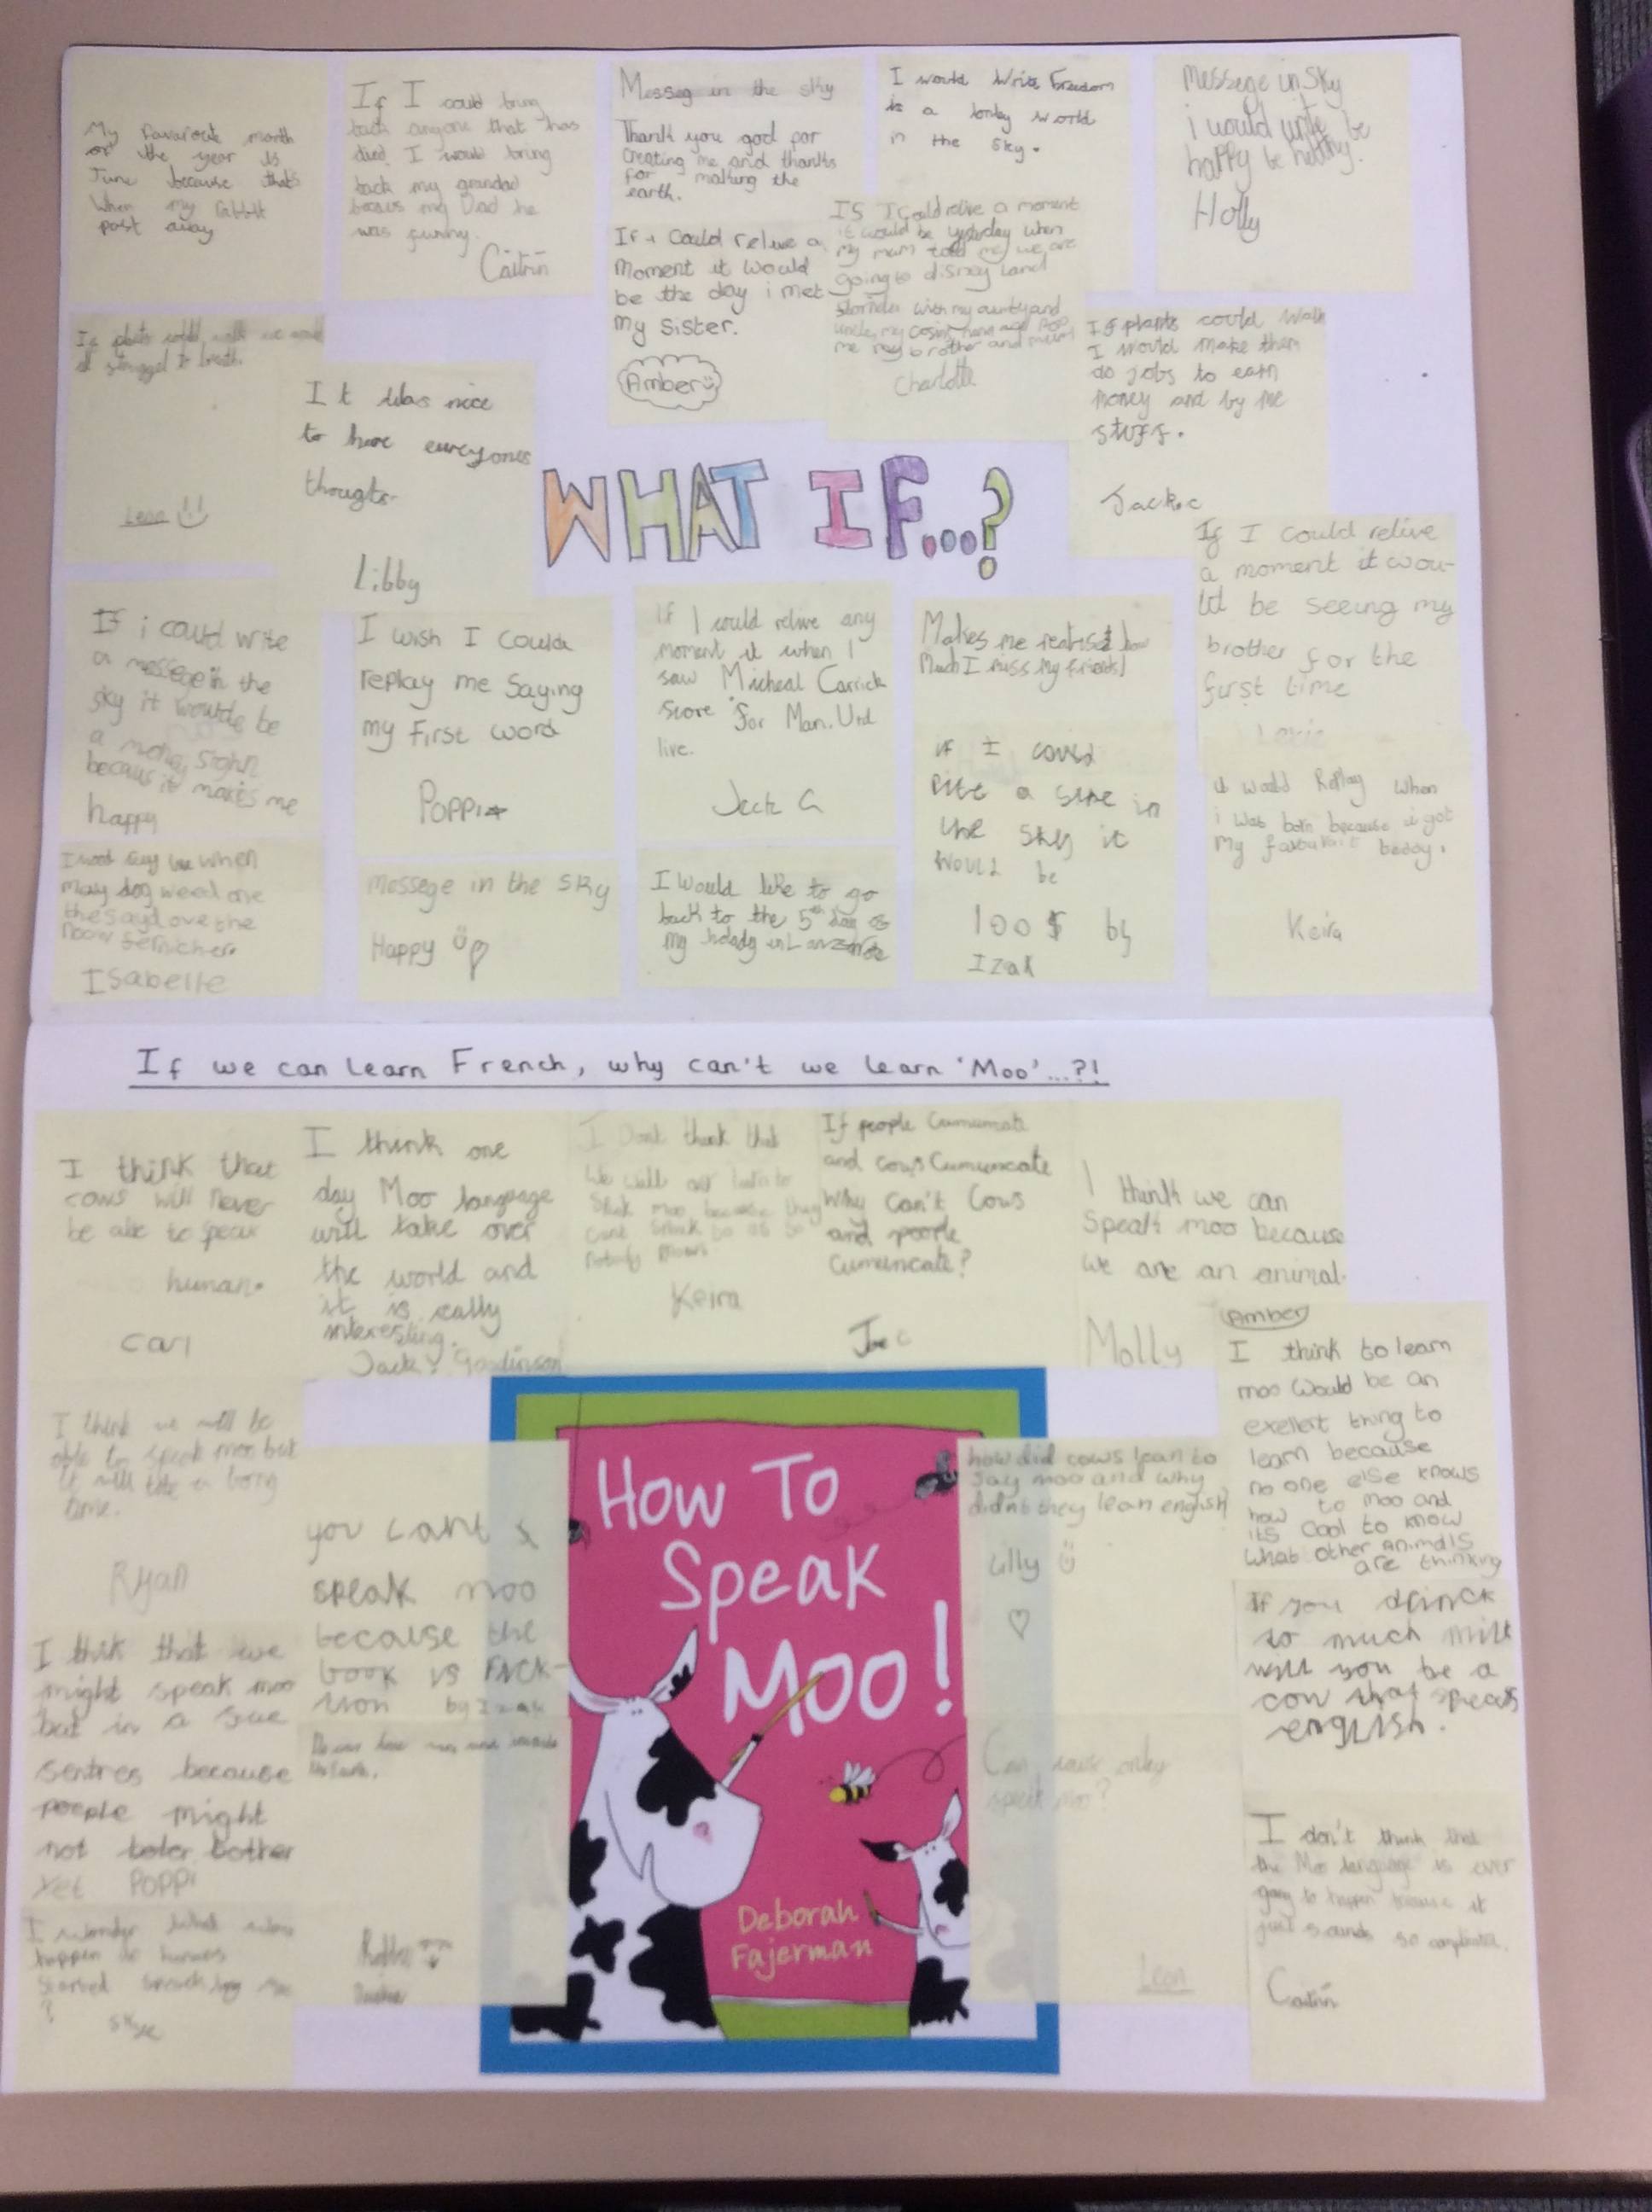 My favaroute month
of the year is
June because that's
When my rabbit
past away
If I could bring
back anyone that has
died, I would bring
back my grandad
my Dad he
was funny.
Caitlin
Messeg in the sky
Thank you god for
creating me and thanks
for making the
earth.
If i could relive a
moment it would
be the day i met
my sister.
Amber
I would Write Freedom
is a lonley world
in the sky.
If I could relive a moment
it would be yesterday when
my mum told me we are
going to disney land
with my aunty and
me my brother and mum
Charlotte
Messege in Sky
i would write be
happy be helthy!
Holly
If plants could walk we would
all struggel to breath.
Leon
It was nice
to have everyones
thougts.
Libby
WHAT IF...?
If plants could walk
I would make them
do jobs to earn
money and by me
stuff.
Jack.c
If I could relive
a moment it wou-
ld be seeing my
brother for the
first time
Lexie
If i could write
a messege in the
sky it woulde be
a mony sighn
becaus it makes me
happy
I wish I coulda
replay me saying
my first word
Poppi
If I could relive any
moment it when I
saw Micheal Carrick
score for Man.Utd
live.
Jack G
Makes me realised how
much I miss my friends!
if I could
rite a sine in
the sky it
would be
100$ by
Izak
it would Replay when
i was born because i got
my favourait teddy.
Keira
when
may dog weed one
ove the
Isabelle
messege in the sky
Happy
I would like to go
back to the 5th day of
my holady in Lanzarote
If we can learn French, why can't we learn 'Moo'...?!
I think that
cows will never
be able to speak
human.
Carl
I think one
day Moo language
will take over
the world and
it is really
interesting.
Jack
I Dont think that
We will
moo because they
cant speak to us so
nobody knows
Keira
If people cumuncate
and cows cumuncate
Why can't cows
and people
cumuncate?
Joe c
I think we can
speak moo because
we are an animal.
Molly
Amber
I think to learn
moo would be an
exellert thing to
learn because
no one else knows
how to moo and
its cool to know
what other animals
are thinking
I think we will be
able to speak moo but
it will take a long
time.
Ryan
you cant
speak moo
because the
book is fick-
tion by Izak
How To
Speak
Moo!
Deborah
Fajerman
how did cows lean to
say moo and why
didn't they lean english
Lilly
If you drinck
so much milk
will you be a
cow that speaks
english.
I thik that we
might speak moo
but in a
sentres because
people might
not bother
yet Poppi
Can cows only
speak moo?
Leon
I don't think that
the Moo language is ever
going to happen because it
just sounds so complicated.
Caitlin
I wonder what
happen if humans
started
?
Skye